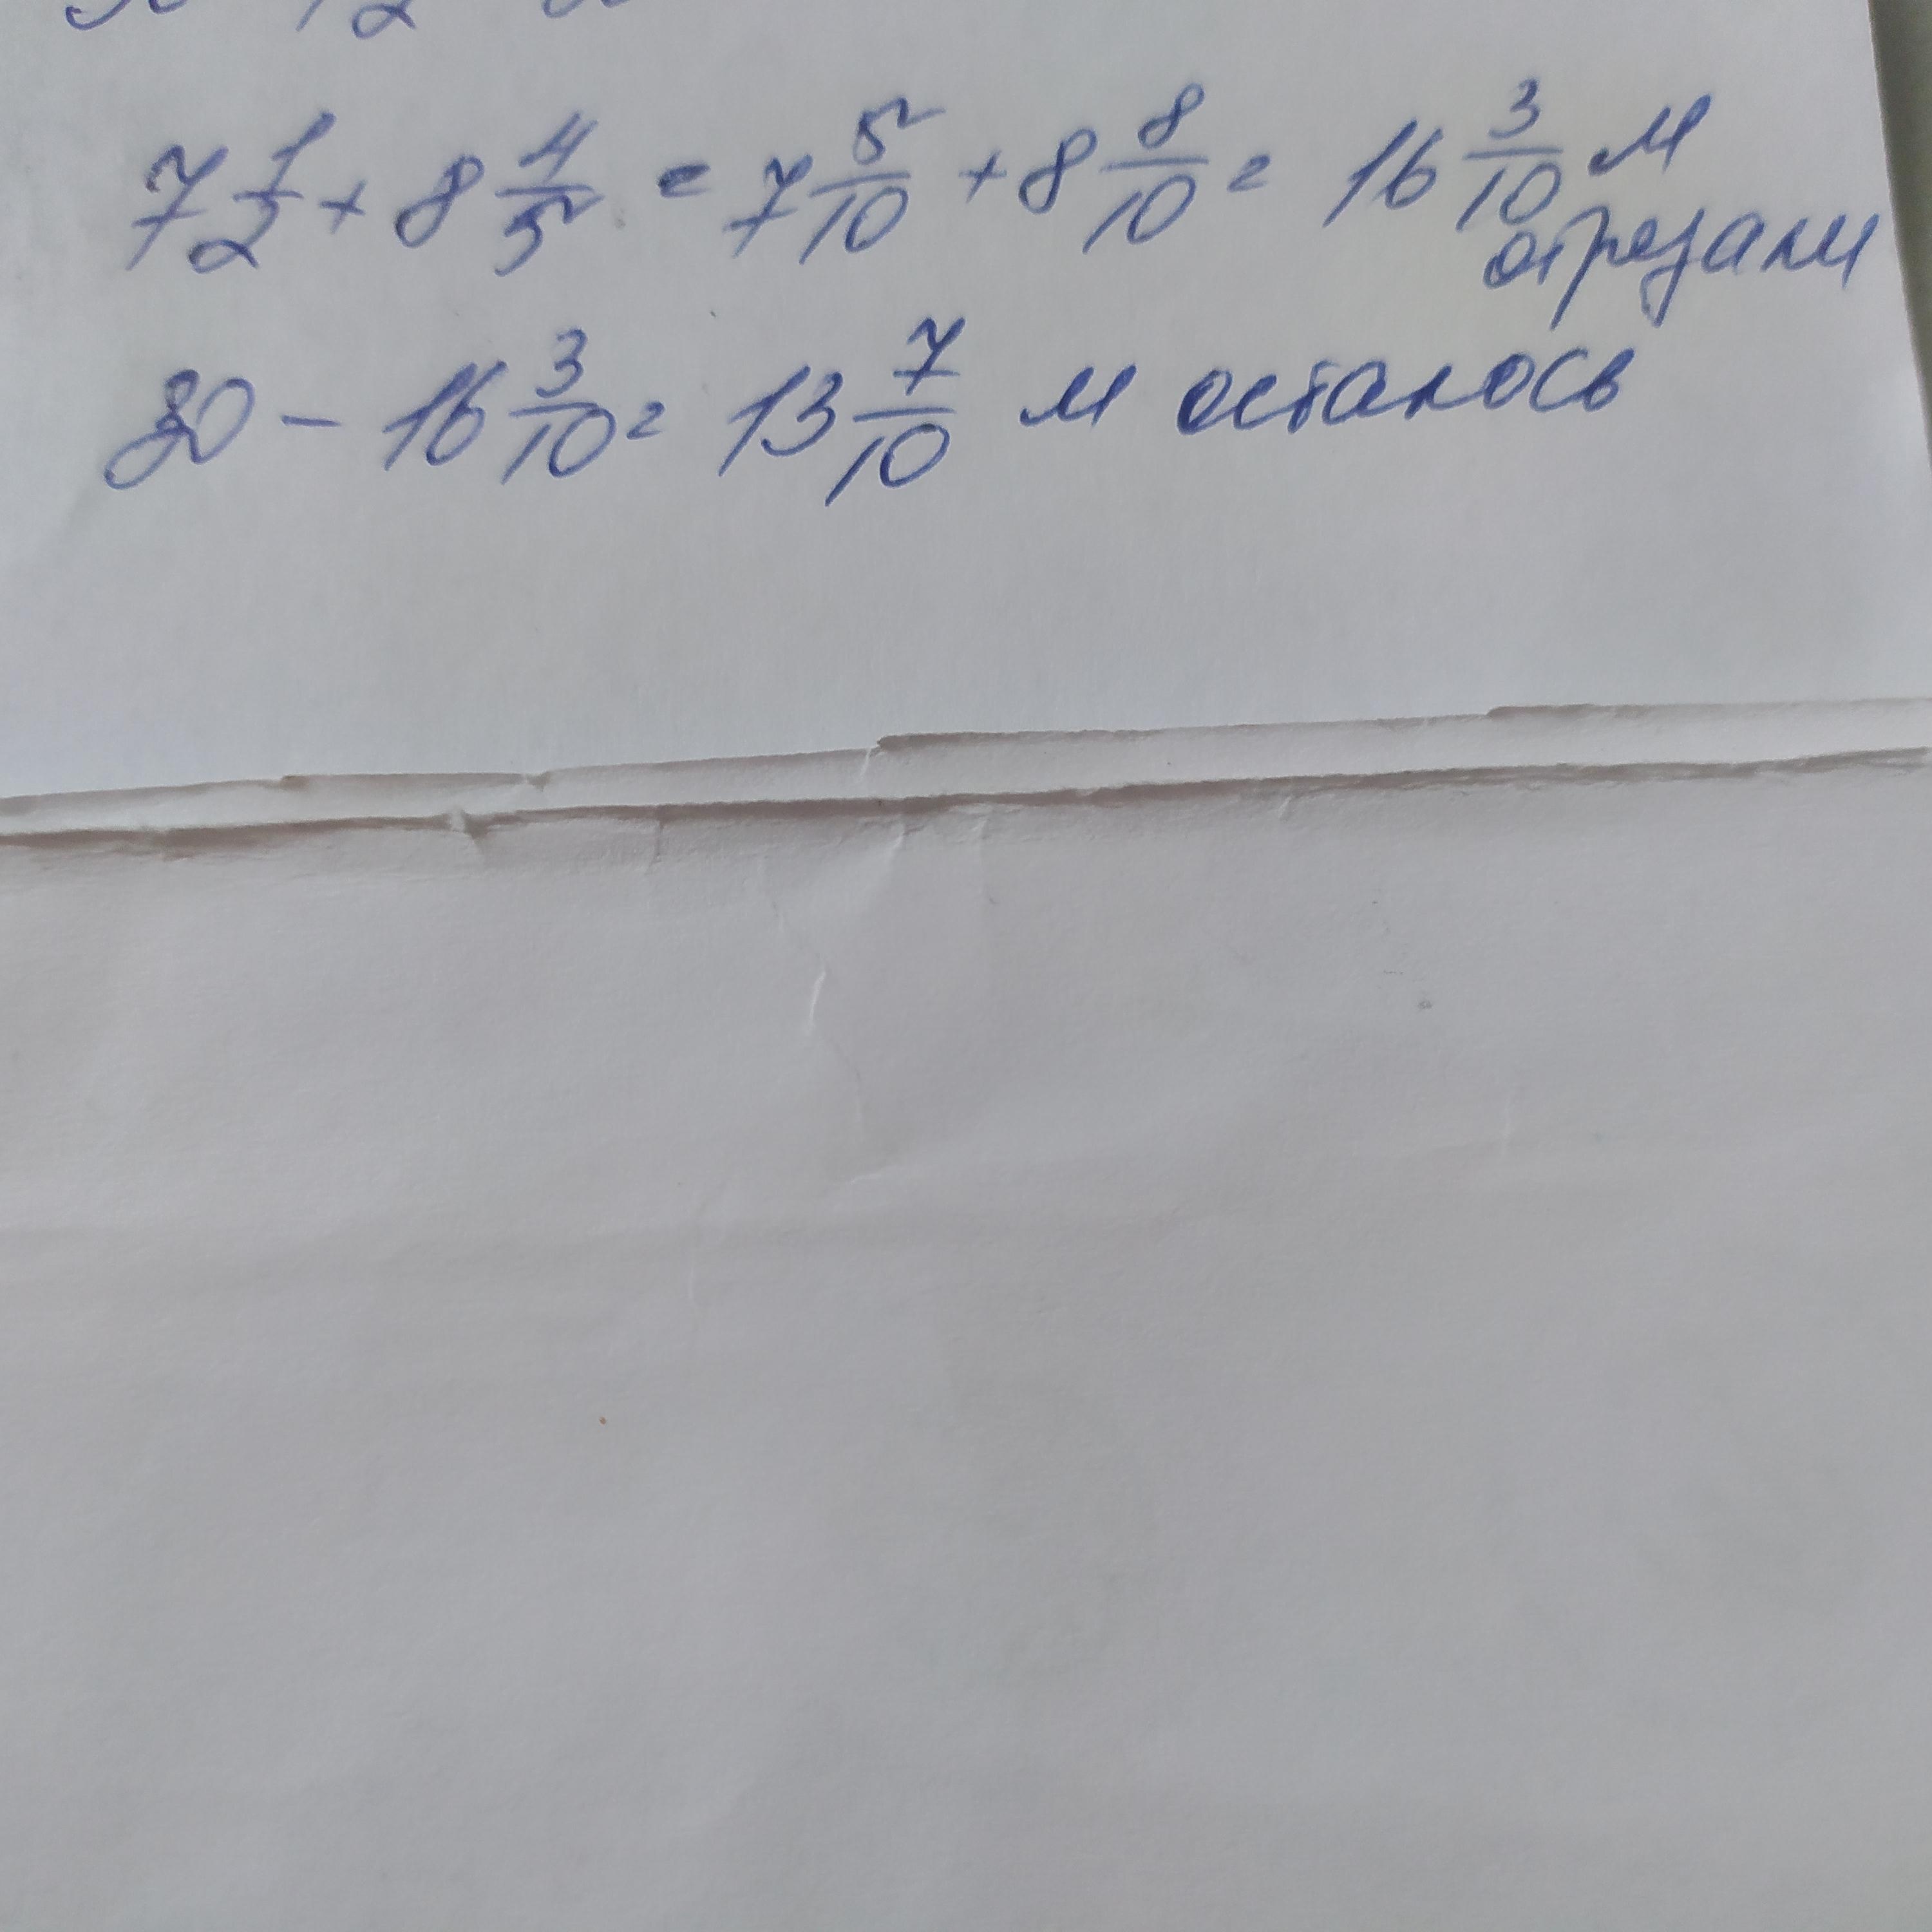 7 1/2 + 8 4/5 = 7 5/10 + 8 8/10 = 16 3/10 м
отрезали
30 - 16 3/10 = 13 7/10 м осталось